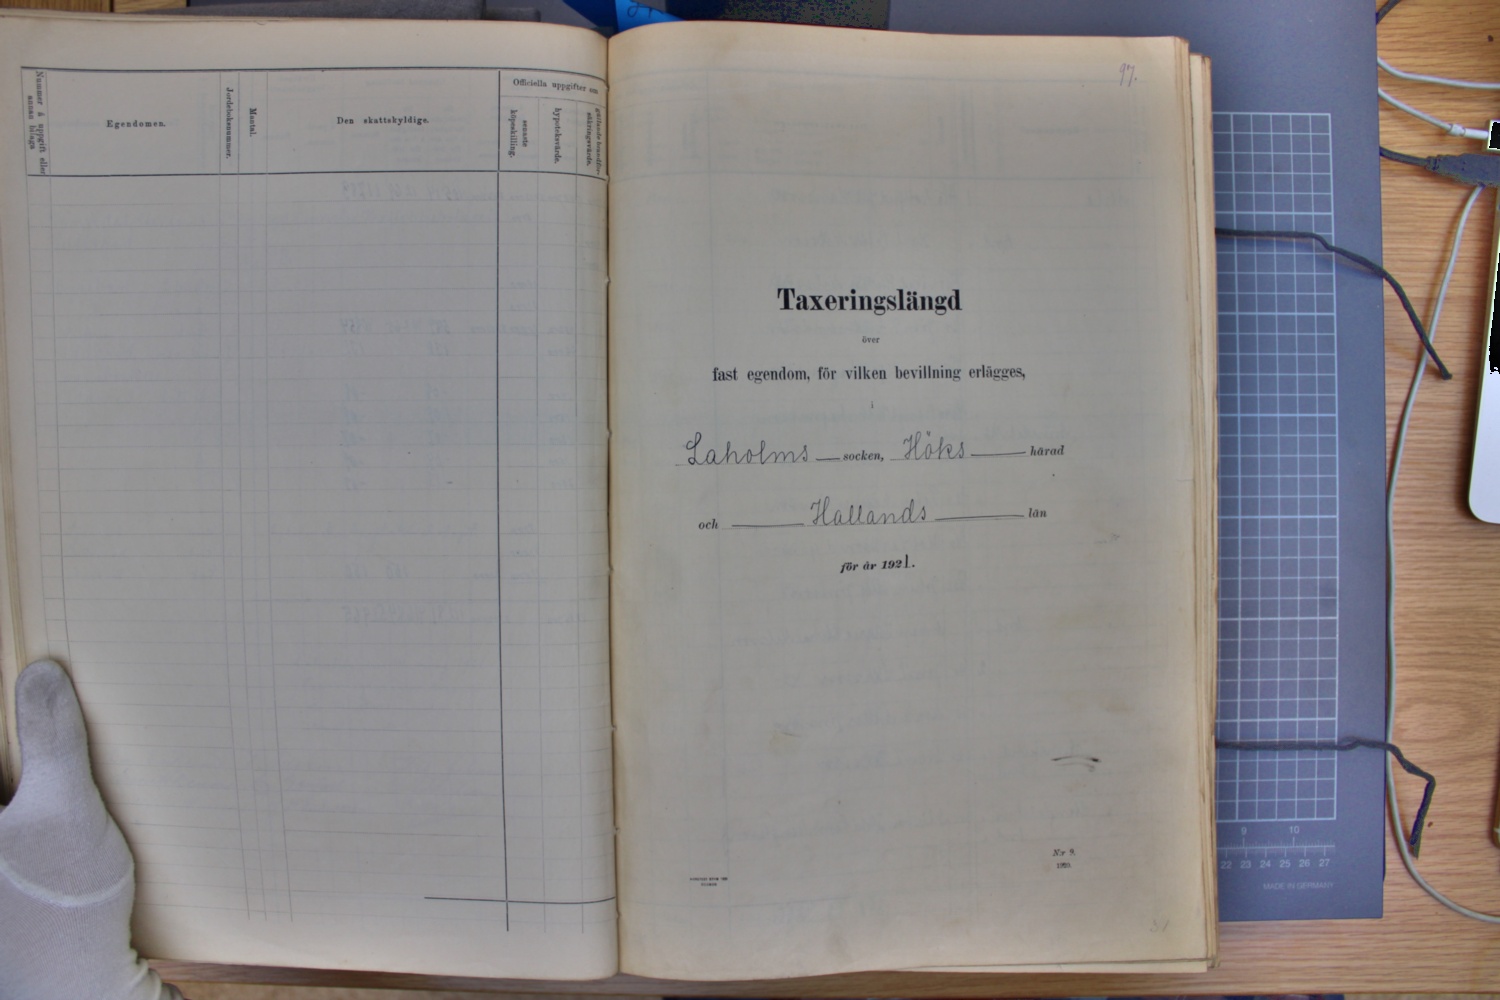 Nummer å uppgift eller
annan bilaga
Egendomen.
Jordeboksnummer.
Mantal.
Den skattskyldige.
Officiella uppgifter om
senaste
köpeskilling.
hypoteksvärde.
97.
Taxeringslängd
över
fast egendom, för vilken bevillning erlägges,
Laholms socken, Höks härad
och Hallands län
för år 1921.
N:r 9.
1920.
9 10
22 23 24 25 26 27
MADE IN GERMANY